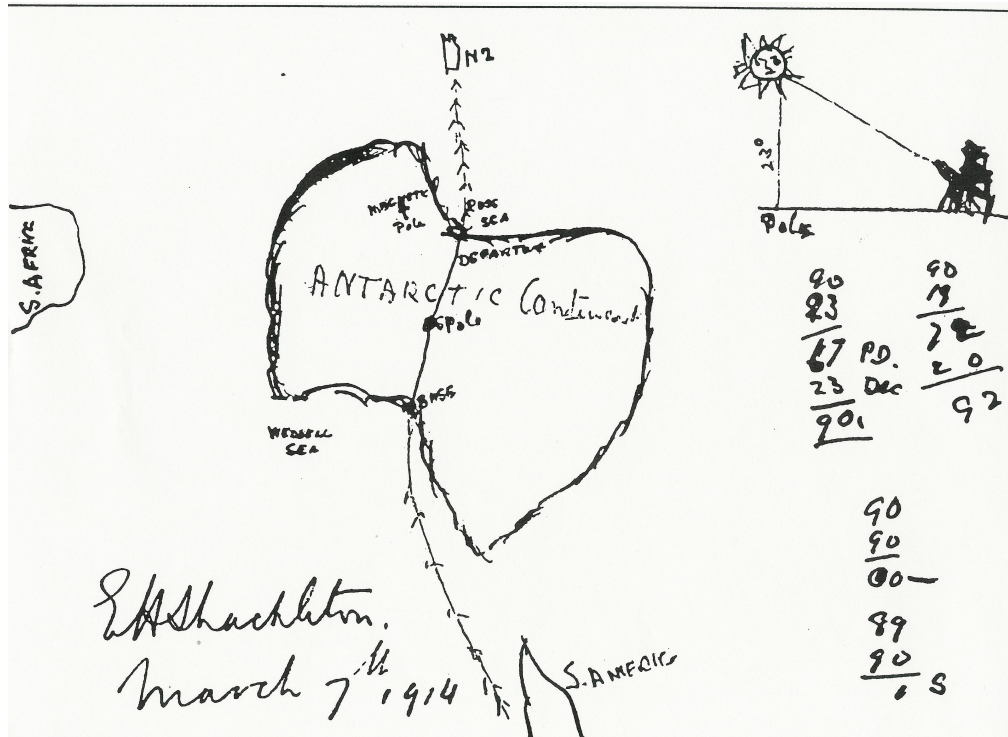 NZ
MAGNETIC
Pole
ROSS
SEA
DEPARTURE
S. AFRICA
ANTARCTIC Continent
S Pole
BASE
WEDDELL
SEA
S. AMERICA
EHShackleton.
March 7th 1914
23°
Pole
90
23
67 P.D.
23 Dec
90
90
20
92
90
90
00
89
90
1 S